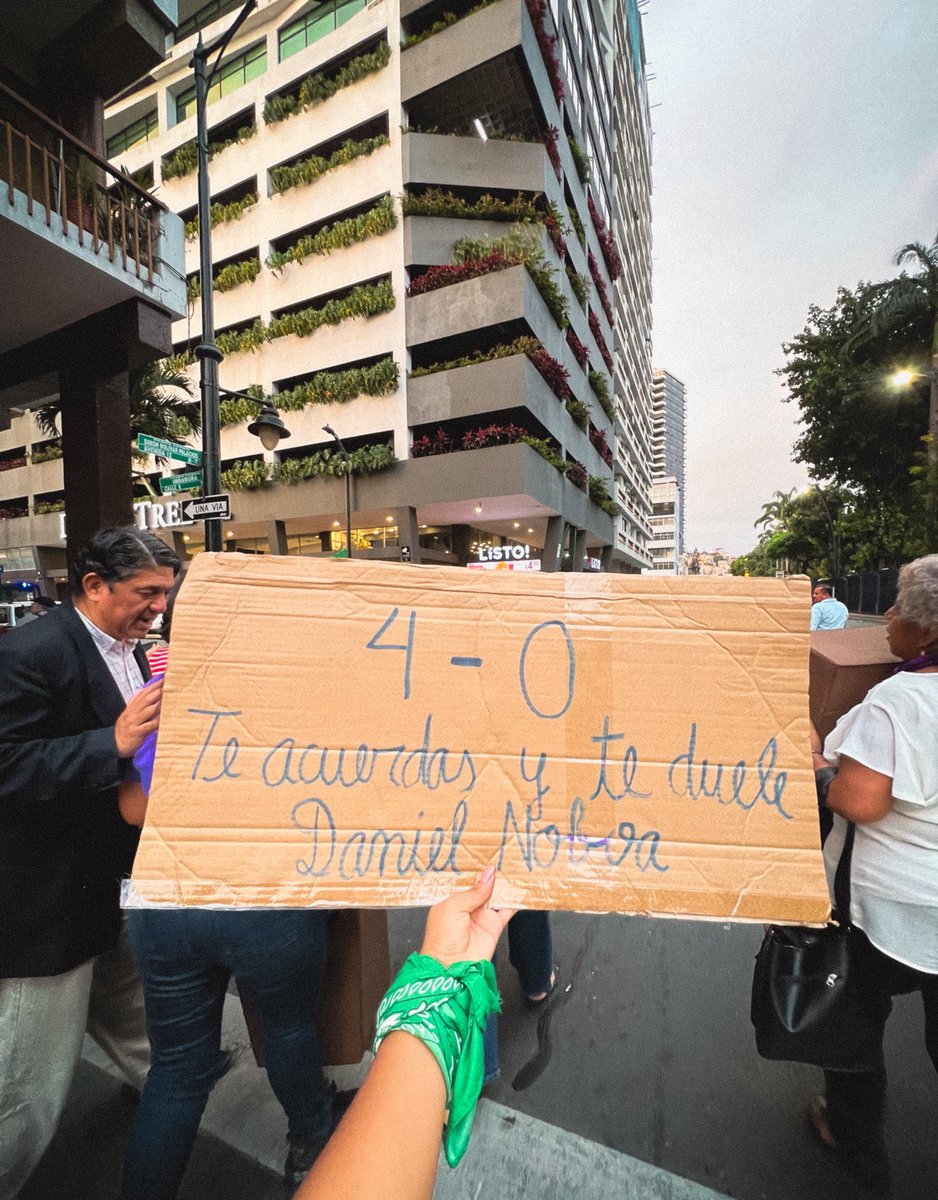 SIMON BOLIVAR PALACIOS
AVENIDA
IMBABURA
CALLE
UNA VIA
TREE
LISTO!
4 - 0
Te acuerdas y te duele
Daniel Noboa